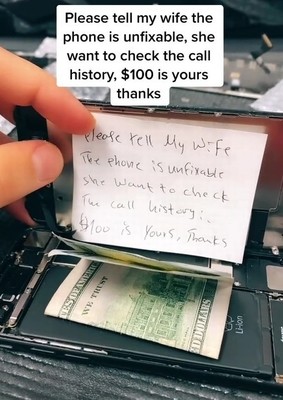 Please tell my wife the
phone is unfixable, she
want to check the call
history, $100 is yours
thanks
please tell My Wife
The phone is unfixable
she want to check
The call history:.
$100 is Yours, Thanks
WE TRUST
DOLLARS
Li-ion